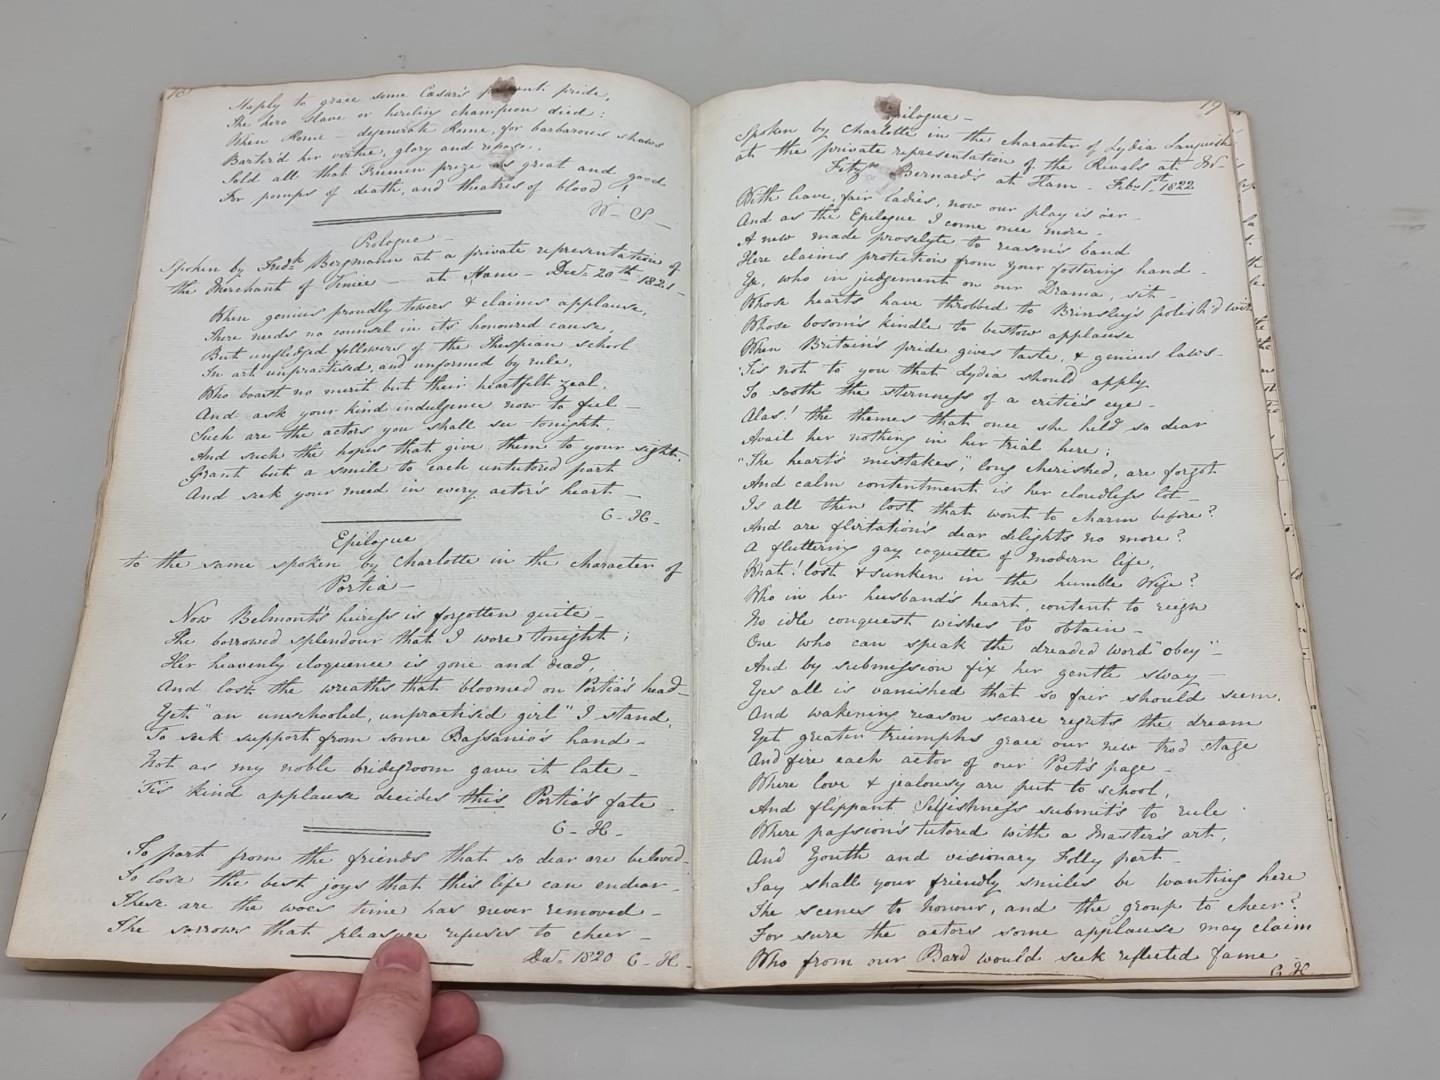 18
Haply to grace some Cæsar's pride,
The hero slave or hireling champion died;
When Rome – degenerate Rame, for barbarous shows
Barter'd her virtue, glory and repose.
Sold all that Freemen prize as great and good
For pomps of death, and theatres of blood!
W– S–
Prologue –
Spoken by Fred.k Bergmann at a private representation of
the Merchant of Venice – at Ham – Dec.r 20th 1821 –
When genius proudly towers & claims applause,
There needs no counsel in its honoured cause,
But unfledged followers of the Thespian school
In art unpractised, and unformed by rule,
Who boast no merit but their heartfelt zeal,
And ask your kind indulgence now to feel –
Such are the actors you shall see tonight,
And such the hopes that give them to your sight.
Grant but a smile to each untutored part
And seek your meed in every actor's heart –
C– H–
Epilogue
to the same spoken by Charlotte in the character of
Portia –
Now Belmont's heiress is forgotten quite –
The borrowed splendour that I wore tonight;
Her heavenly eloquence is gone and dead,
And lost the wreaths that bloomed on Portia's head –
Yet "an unschooled, unpractised girl" I stand,
To seek support from some Bassanio's hand –
Not as my noble bridegroom gave it late –
Tis kind applause decides this Portia's fate
C– H–
To part from the friends that so dear are beloved –
To lose the best joys that this life can endear –
These are the woes time has never removed –
The sorrows that pleasure refuses to cheer –
1820 C– H–
19
Epilogue –
Spoken by Charlotte in the character of Lydia Languish
at the private representation of the Rivals at W–
Fitz Bernard's at Ham – Feb.y 1st 1822
With leave, fair ladies, now our play is o'er –
And as the Epilogue I come once more –
A new made proselyte to reason's band
Here claims protection from your fostering hand –
Ye, who in judgement on our Drama, sit –
Whose hearts have throbbed to Brinsley's polish'd wit
Whose bosoms kindle to bestow applause
When Britain's pride gives taste, & genius laws –
'Tis not to you that Lydia should apply
To sooth the sternness of a critic's eye –
Alas! the themes that once she held so dear
Avail her nothing in her trial here;
"The heart's mistakes", long cherished, are forgot
And calm contentment is her cloudless lot –
Is all then lost that wont to charm before?
And are flirtation's dear delights no more?
A fluttering gay coquette of modern life,
What! lost & sunken in the humble Wife?
Who in her husband's heart, content to reign
No idle conquest wishes to obtain –
One who can speak the dreaded word "obey" –
And by submission fix her gentle sway –
Yes all is vanished that so fair should seem,
And wakening reason scarce regrets the dream
Yet greater triumphs grace our new trod stage
And fire each actor of our Poet's page –
Where love & jealousy are put to school,
And flippant Selfishness submits to rule
Where passion's tutored with a Master's art,
And Youth and visionary Folly part –
Say shall your friendly smiles be wanting here
The scenes to honour, and the group to cheer?
For sure the actors some applause may claim
Who from our Bard would seek reflected fame
C. H.